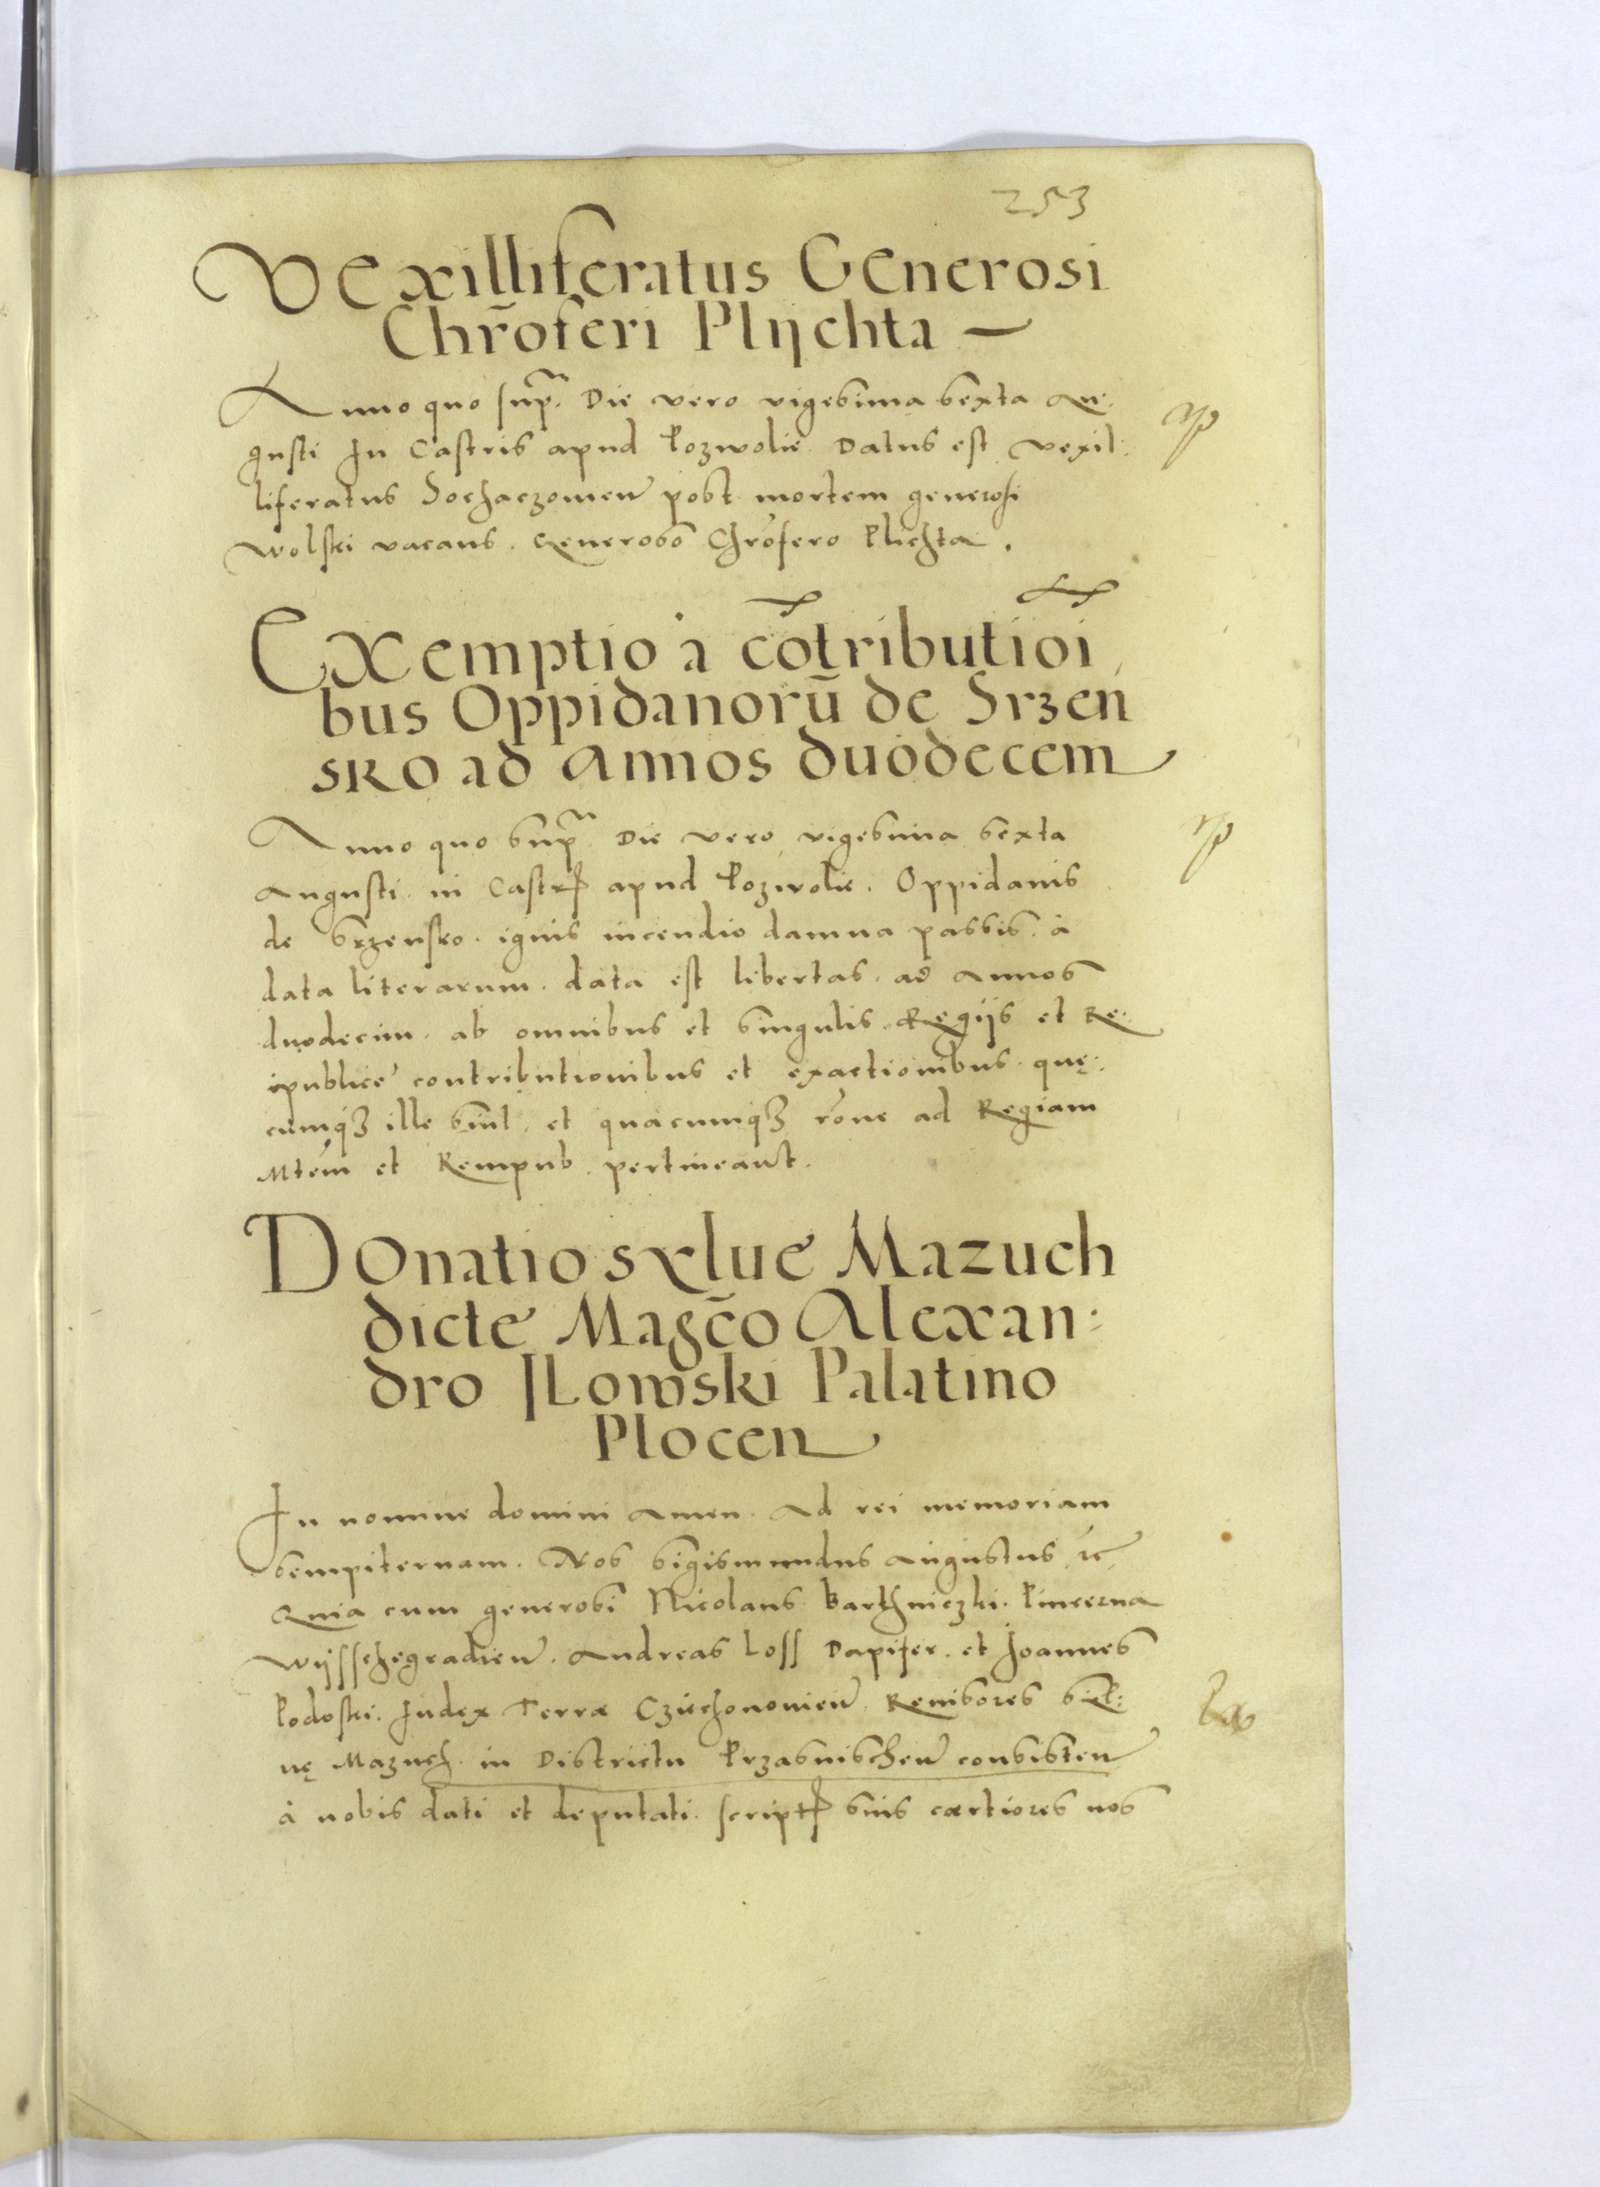 253
Vexilliferatus Generosi
Chr̃oferi Plijchta —
Anno quo supra. Die vero vigesima sexta Au:
gusti In Castris apud Pozwolie Datus est vexil:
liferatus Sochaczowien̄ post mortem generosi
Wolski vacans. Generoso Chrōfero Plichta.
Exemptio à cōtributioī
bus Oppidanorū de Srzen
sko ad Annos duodecem
Anno quo supra Die vero vigesima sexta
Augusti in Castris apud Pozwolie. Oppidanis
de Srzensko. ignis incendio damna passis. à
data literarum. data est libertas. ad Annos
duodecim. ab omnibus et singulis Regijs et Re:
ipublicę contributionibus et exactionibus. quę:
cumq̨ ille sint. et quacumq̨ rōne ad Regiam
Mtem et Rempub. pertineant.
Donatio sylue Mazuch
dicte Magc̄o Alexan:
dro Jlowski Palatino
Plocen
In nomine domini Amen. Ad rei memoriam
sempiternam. Nos Sigismundus Augustus etc̄
Quia cum generosi Nicolaus Barthniczki. Pincerna
Wyssehegradien̄. Andreas Loss Dapifer. et Joannes
Podoski. Judex Terrae Cziechonowien̄. Revisores Sil:
vę Mazuch. in Districtu Przasnischen̄ consisten̄
à nobis dati et deputati. scriptis suis certiores nos